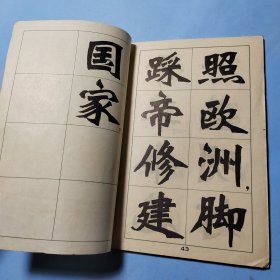 照欧洲，脚
踩帝修建
43
国家